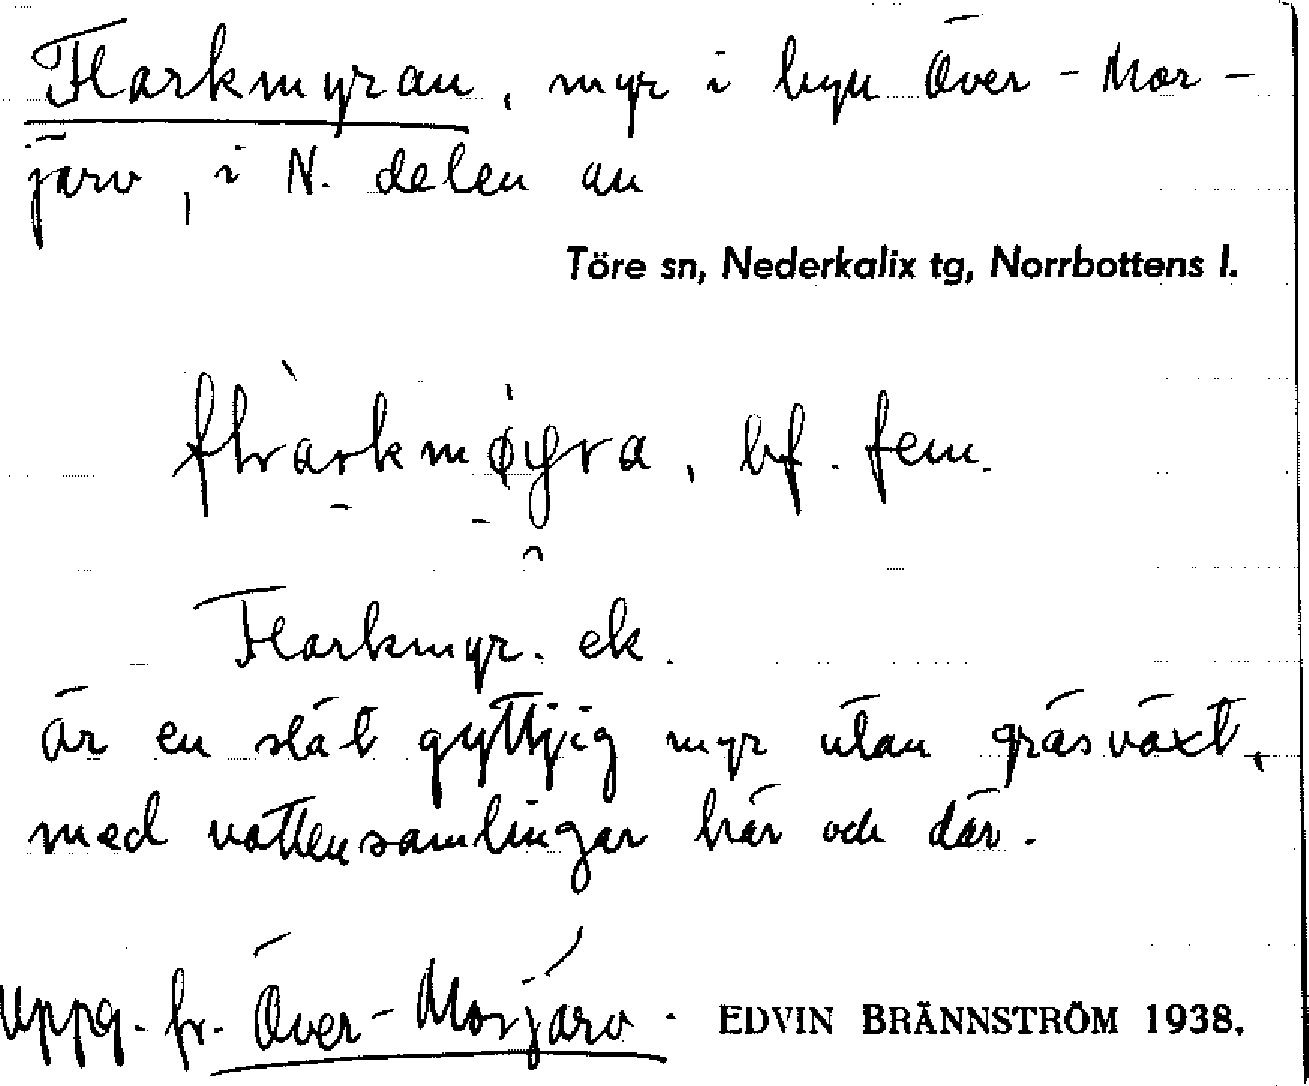 Flarkmyran, myr i byn Över-Mor-
järv, i N. delen av
Töre sn, Nederkalix tg, Norrbottens l.
bf. fem.
Flarkmyr. ek.
är en slät gyttjig myr utan gräsväxt,
med vattensamlingar här och där.
Uppg. fr. Över-Morjärv. EDVIN BRÄNNSTRÖM 1938.